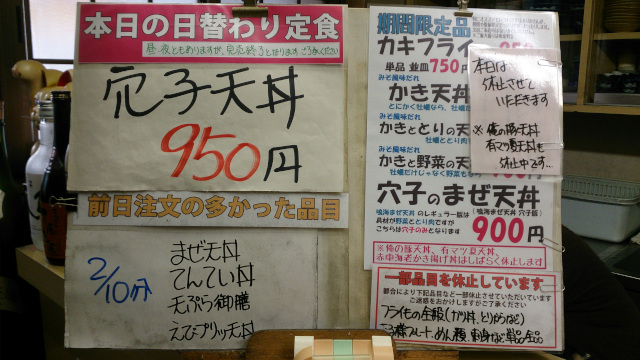 本日の日替わり定食
昼・夜ともありますが、完売終了となります ご了承ください
穴子天丼
950円
前日注文の多かった品目
2/10分
まぜ天丼
てんてい丼
天ぷら御膳
えびプリッ天丼
期間限定品
カキフライ
単品 並皿 750円
みそ風味だれ
かき天丼
とにかく牡蠣なら、牡蠣
みそ風味だれ
かきととりの天
牡蠣ととり肉
みそ風味だれ
かきと野菜の天
牡蠣だけじゃなく野菜も
穴子のまぜ天丼
鳴海まぜ天丼 のレギュラー版は
具材が野菜ととり肉ですが
こちらは穴子のみとなります
(鳴海まぜ天丼 穴子版)
900円
※俺の豚天丼、有マツ夏天丼、
赤車海老かき揚げ丼はしばらく休止します
一部品目を休止しています
都合により下記品目など一部休止させていただいています
ご迷惑をおかけしますがご了承ください
フライもの全般(カツ丼、とりからなど)
めん類、刺身など単品全品
本日は
休止させて
いただきます
※俺の豚天丼
有マツ夏天丼も
休止中です…